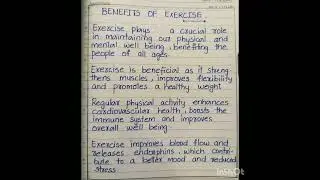 BENEFITS OF EXERCISE.
Exercise plays a crucial role
in maintaining our physical and
mental well being, benefiting the
people of all ages.
Exercise is beneficial as it streng
thens muscles, improves flexibility
and promotes a healthy weight
Regular physical activity enhances
cardiovascular health, boosts the
immune system and improves
overall well being.
Exercise improves blood flow and
releases endorphins, which contri
bute to a better mood and reduced
stress
InShOt